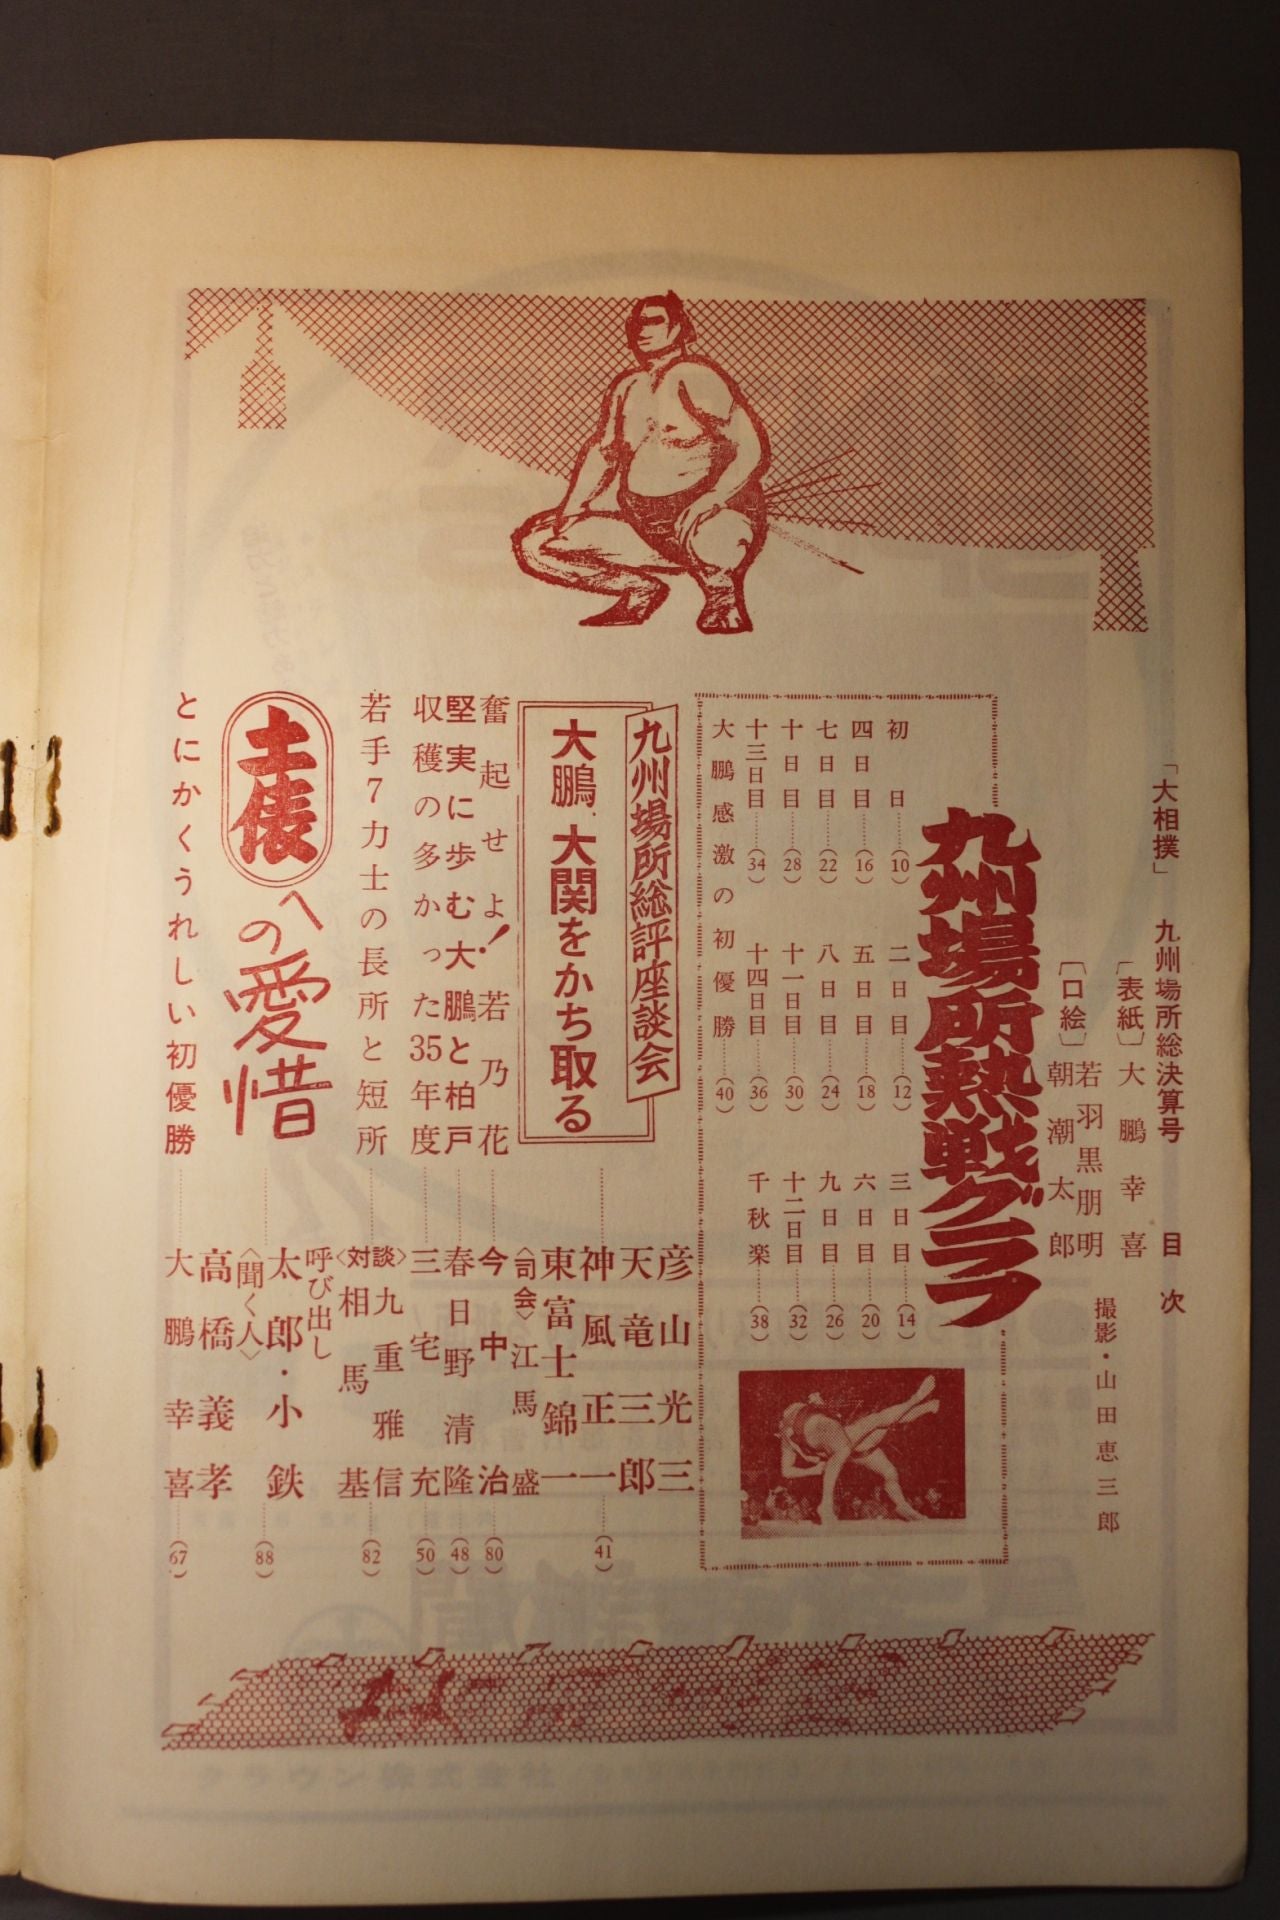 「大相撲」 九州場所総決算号 目次
〔表紙〕大鵬幸喜
〔口絵〕若羽黒朋明
朝潮太郎
撮影・山田恵三郎
九州場所熱戦グラフ
初日……(10)
二日目……(12)
三日目……(14)
四日目……(16)
五日目……(18)
六日目……(20)
七日目……(22)
八日目……(24)
九日目……(26)
十日目……(28)
十一日目……(30)
十二日目……(32)
十三日目……(34)
十四日目……(36)
千秋楽……(38)
大鵬感激の初優勝……(40)
九州場所総評座談会
大鵬、大関をかち取る
彦山光三
天竜三郎
神風正一
東富士錦一
〈司会〉江馬盛
(41)
奮起せよ!若乃花……今中治(80)
堅実に歩む大鵬と柏戸……春日野清隆(48)
収穫の多かった35年度……三宅充(50)
若手7力士の長所と短所……〈対談〉九重雅信
相馬基(82)
土俵への愛惜……呼び出し
太郎・小鉄
〈聞く人〉
高橋義孝(88)
とにかくうれしい初優勝……大鵬幸喜(67)